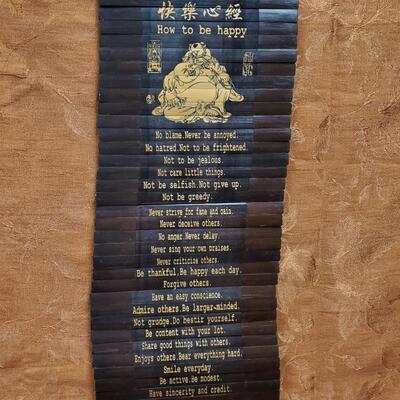 快樂心經
How to be happy
No blame.Never be annoyed.
No hatred.Not to be frightened.
Not to be jealous.
Not care little things.
Not be selfish.Not give up.
Not be greedy.
Never strive for fame and gain.
Never deceive others.
No anger.Never delay.
Never sing your own praises.
Never criticize others.
Be thankful.Be happy each day.
Forgive others.
Have an easy conscience.
Admire others.Be larger-minded.
Not grudge.Do bestir yourself.
Be content with your lot.
Share good things with others.
Enjoys others.Bear everything hard.
Smile everyday.
Be active.Be modest.
Have sincerity and credit.